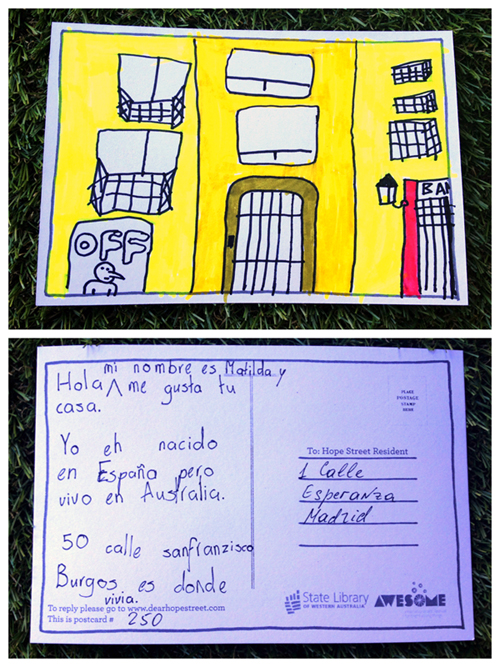 OFF
BAN
mi nombre es Matilda y
Hola ^ me gusta tu
casa.
Yo eh nacido
en España pero
vivo en Australia.
50 calle sanfranzisco
Burgos es donde
vivia.
To reply please go to www.dearhopestreet.com
This is postcard # 250
PLACE
POSTAGE
STAMP
HERE
To: Hope Street Resident
1 Calle
Esperanza
Madrid
State Library
OF WESTERN AUSTRALIA
AWESOME